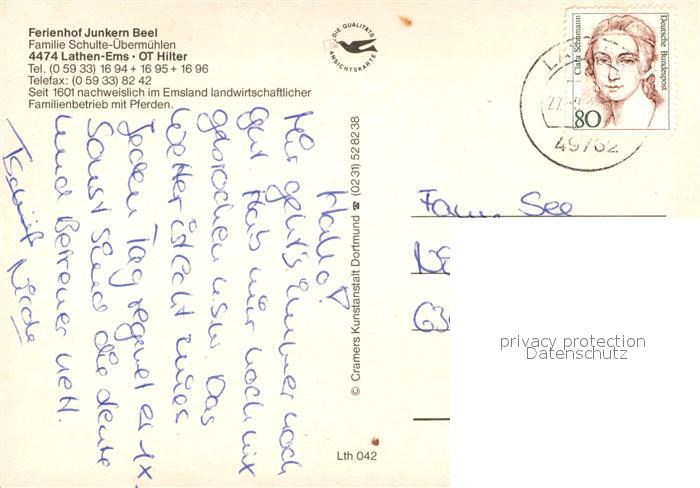 Ferienhof Junkern Beel
Familie Schulte-Übermühlen
4474 Lathen-Ems · OT Hilter
Tel. (0 59 33) 16 94 + 16 95 + 16 96
Telefax: (0 59 33) 82 42
Seit 1601 nachweislich im Emsland landwirtschaftlicher
Familienbetrieb mit Pferden.
DIE QUALITÄTS
ANSICHTSKARTE
Clara Schumann
Deutsche Bundespost
80
49762
Hallo!
Mir geht's immer noch
gut. Hab mir noch nix
gebrochen usw. Das
Wetter ist echt mies
jeden Tag regnet es 1x.
Sonst sind die Leute
und Betreuer nett.
Tschüß
© Cramers Kunstanstalt Dortmund ☎ (0231) 528238
Fam. See
630
Lth 042
privacy protection
Datenschutz